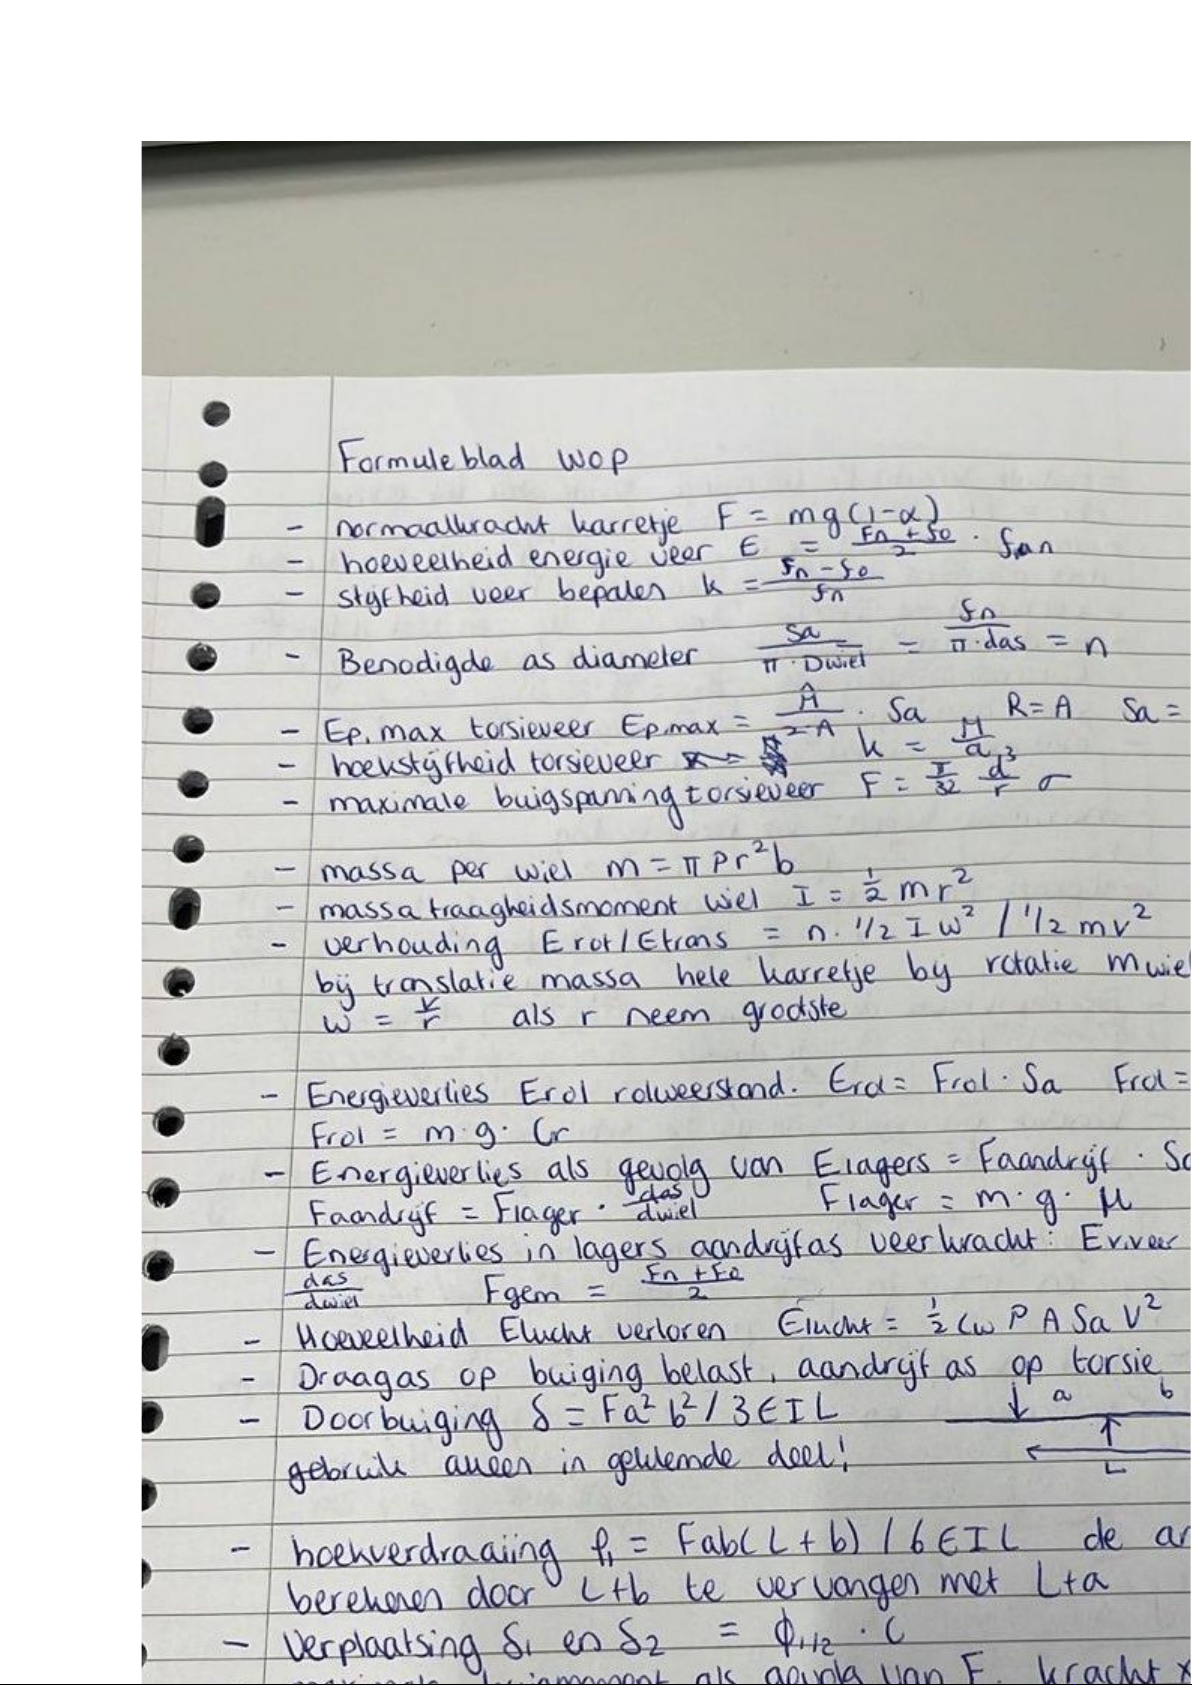 Formuleblad WOP
- normaalkracht karretje F = mg(1-α)
- hoeveelheid energie veer E = (Fn + F0)/2 · fn
- styfheid veer bepalen k = (Fn - F0)/fn
- Benodigde as diameter Sa/(π · Dwiel) = fn/(π · das) = n
- Ep.max torsieveer Ep.max = M̂/(2·A) · Sa R = A Sa =
- hoekstijfheid torsieveer k = M/a
- maximale buigspanning torsieveer F = π/32 d³/r σ
- massa per wiel m = π ρ r² b
- massatraagheidsmoment wiel I = ½ m r²
- verhouding Erot/Etrans = n · 1/2 I w² / 1/2 m v²
bij translatie massa hele karretje by rotatie mwiel
w = v/r als r neem grootste
- Energieverlies Erol rolweerstand. Erol = Frol · Sa Frol =
Frol = m · g · Cr
- Energieverlies als gevolg van Elagers = Faandrijf · Sa
Faandrijf = Flager · das/dwiel Flager = m · g · μ
- Energieverlies in lagers aandrijfas veerkracht: Ev.veer
das/dwiel Fgem = (Fn + F0)/2
- Hoeveelheid Elucht verloren Elucht = ½ Cw ρ A Sa V²
- Draagas op buiging belast, aandrijf as op torsie
- Doorbuiging δ = Fa² b² / 3EIL
a b
gebruik alleen in geklemde deel!
L
- hoekverdraaiing φ₁ = Fab(L + b) / 6EIL de an
berekenen door L+b te vervangen met L+a
- Verplaatsing δ₁ en δ₂ = φ₁/₂ · C
als gevolg van F. kracht x